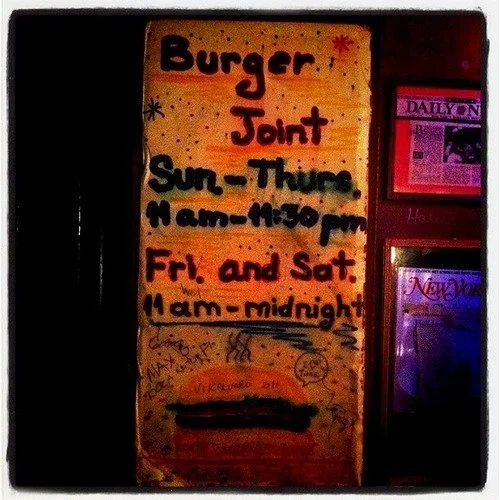 Burger
Joint
Sun.-Thurs.
11am-11:30pm
Fri. and Sat.
11am-midnight
MAX
DAILY N
NEW YOR